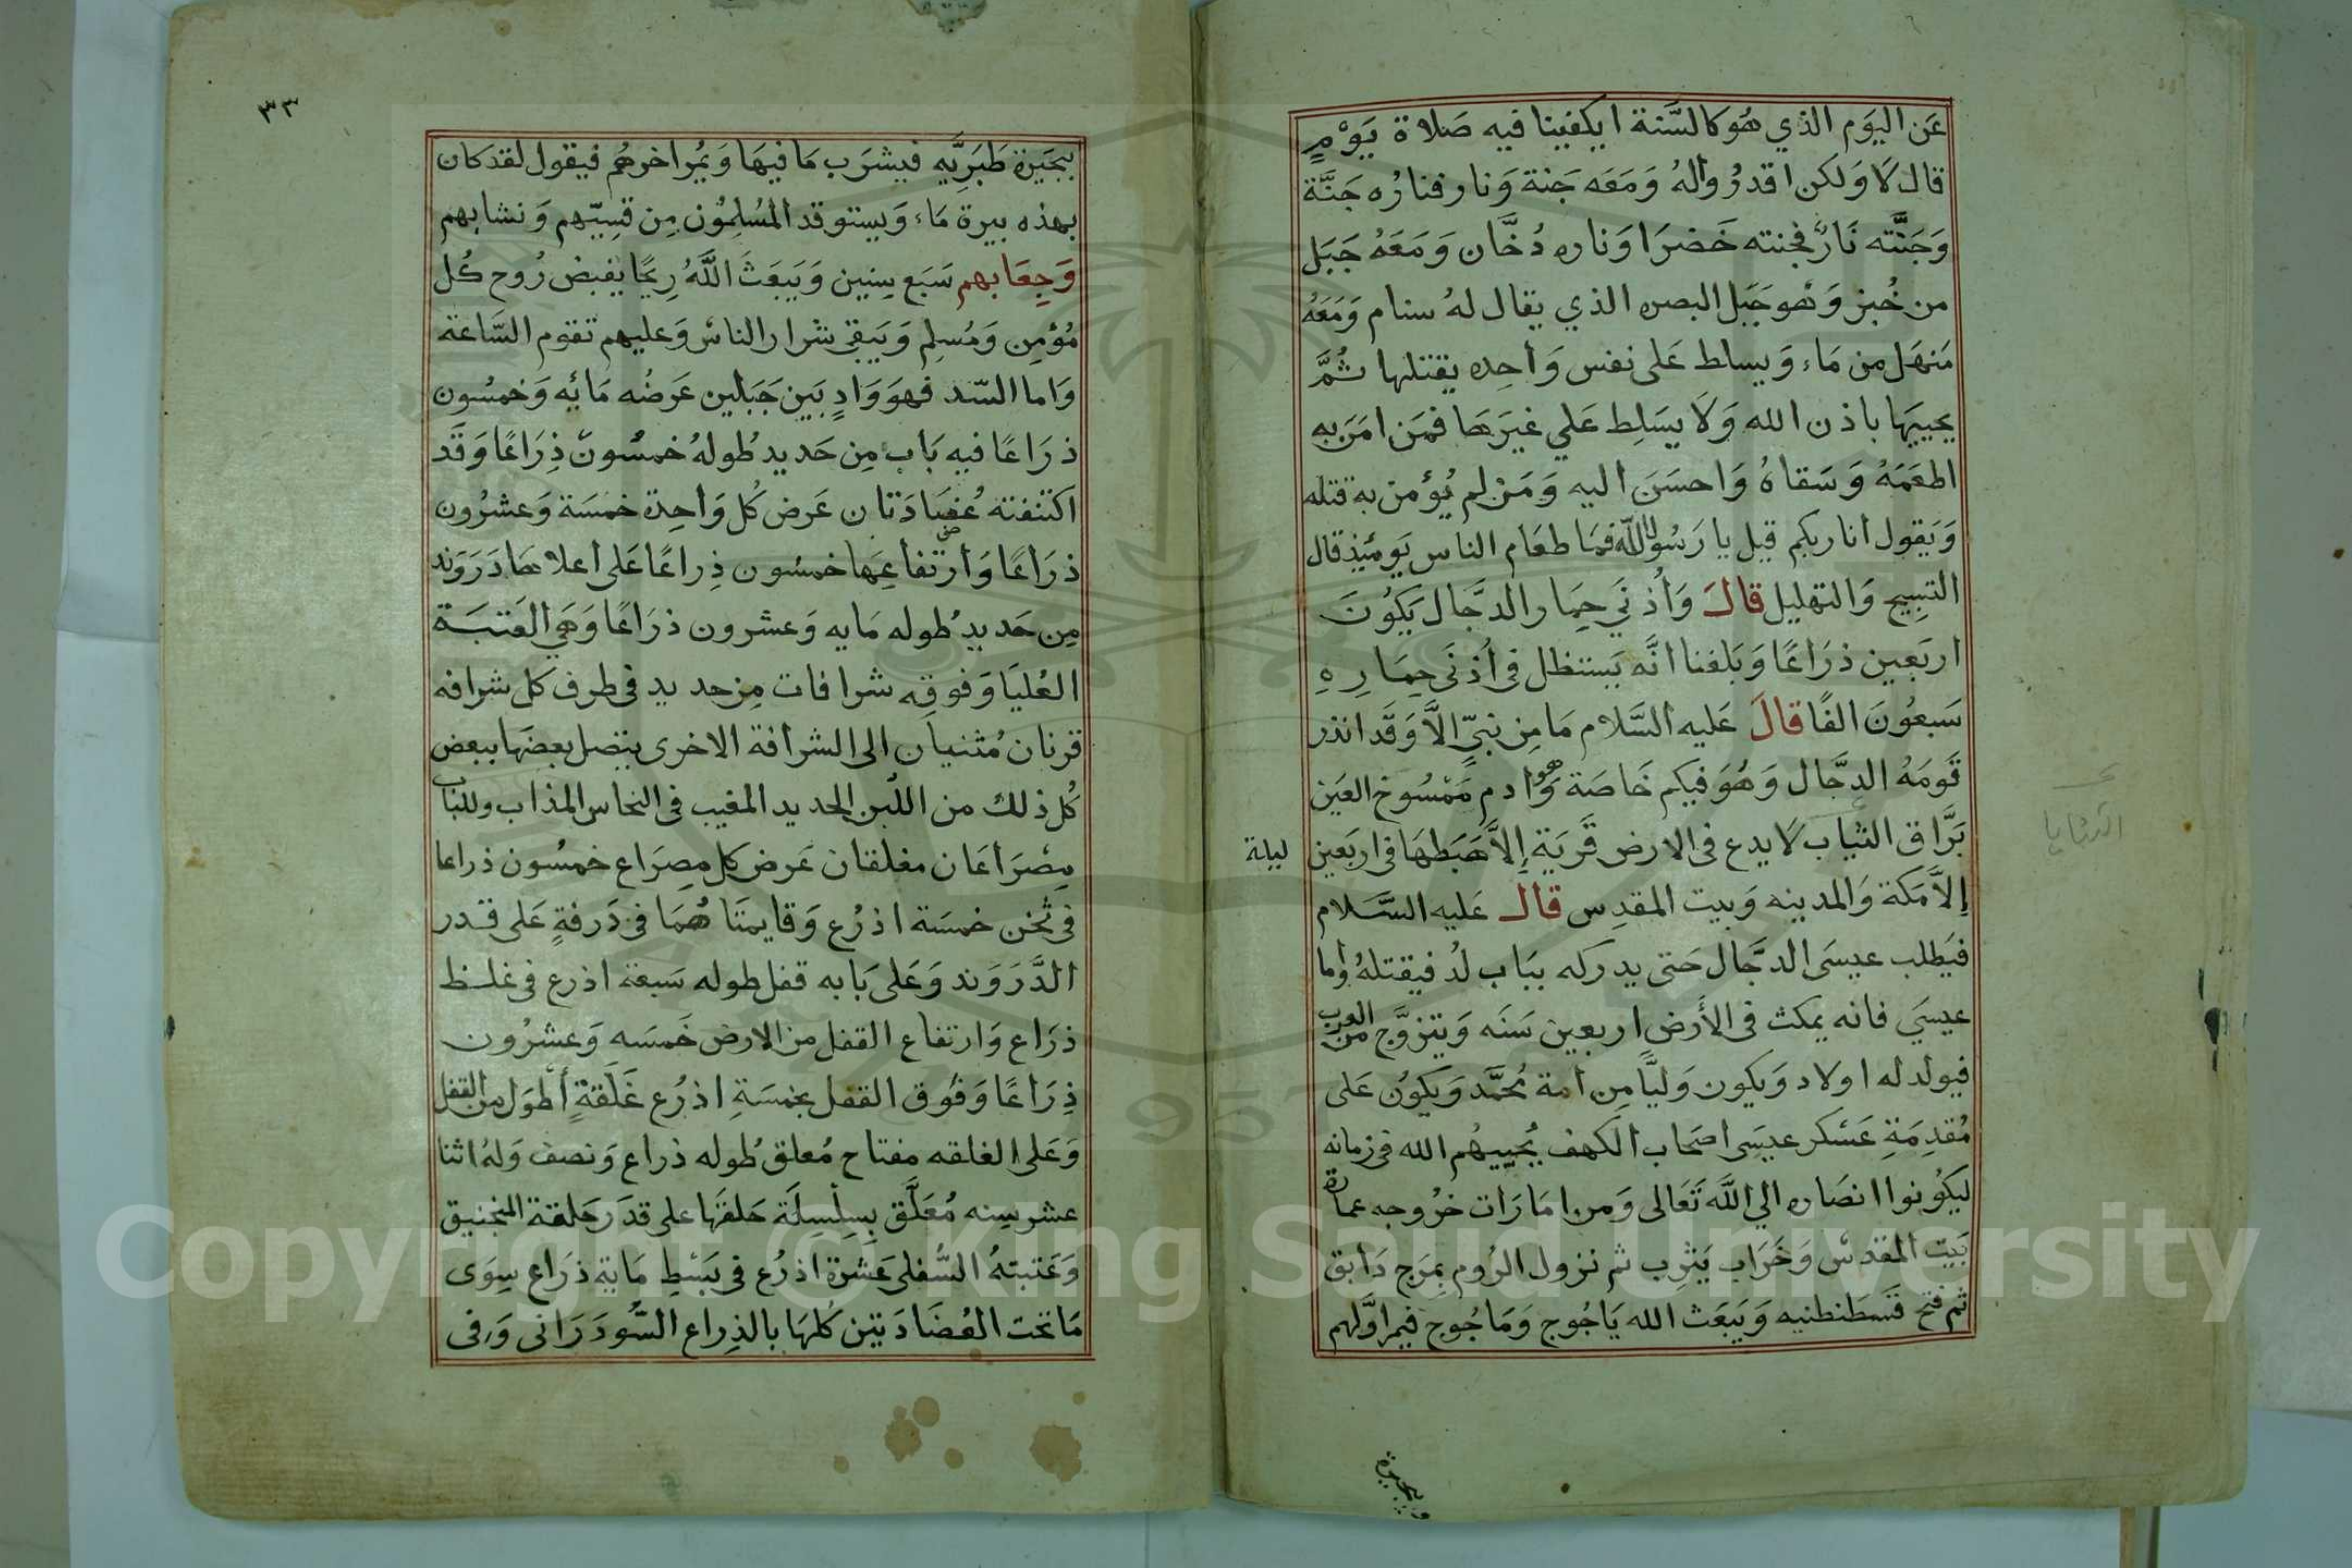 عَن اليَوم الذي هُوَ كالسَّنة ايكفينا فيه صَلاة يَوْمٍ
قال لَا وَلكن اقدرُواله وَمَعَه جَنة وَنار فنارُه جَنَّة
وَجَنَّته نَارٌ فجنته خَضرَا وَناره دُخَّان وَمَعَهُ جَبَل
من خُبز وَهو جَبَل البصره الذي يقال لهُ سنام وَمَعَهُ
مَنهَل من مَاء وَيساط عَلى نفس وَاحِده يقتلها ثُمَّ
يحييهَا باذن الله وَلَا يسَلِط عَلي غيَرهَا فمَن امَن به
اطعَمَهُ وَسَقاهُ وَاحسَنَ اليه وَمَن لم يُؤمن به قتله
وَيَقول انا ربكم قيل يا رَسُول الله فمَا طعَام الناس يَومَئِذ قال
التسِبيح وَالتهليل قالَ وَأُذنَي حِمَار الدجَّال يَكوُنَ
اربَعين ذرَاعًا وَبَلغنا انَّه يَستظل في اُذنَي حِمَارِهِ
سَبعُونَ الفًا قالَ عَليه السَّلام مَا مِن نبيٍّ الاَّ وَقَد انذر
قَومَهُ الدجَّال وَهُوَ فيكم خَاصَة وَهوا دم مَمْسُوخ العَين
بَرَّاق الثياب لَا يدع في الارض قَريَة إلاَّ هَبَطهَا في اربَعين ليلة
إلاَّ مَكة وَالمدينه وَبيت المقدِس قال عَليه السَّلام
فيَطلب عيسَى الدجَّال حَتى يدركه ببَاب لدُ فيقتلهُ وأما
عيسَي فانه يمكث في الأَرض اربعين سَنَه وَيتزوَّج من العرب
فيولد له اولاد وَيكون وَليًّا مِن أمة مُحَمَّد وَيكوُن عَلى
مُقدِمَةِ عَسْكر عيسَى اصحَاب الكهف يُحييهُم الله في زمانه
ليكوُنوا انصَاره الي اللَّه تَعَالى وَمن امَارَات خرُوجه عمارة
بَيت المقدس وَخَرَاب يَثرِب ثم نزول الرُوم بمَرج دَابق
ثم فتح قسَطنطنيه وَيَبعَث الله يَاجُوج وَمَاجُوج فيمر اوَّلهم
ببحَيرة
٣٣
ببحَيرة طَبَرِيَّه فيشرَب مَا فيهَا وَيمُر اخرهُم فيقول لقد كان
بهذه بيرة مَاء وَيستوقد المُسُلِمُون مِن قسِيّهم وَنشابهم
وَجِعَابهم سَبَع سِنين وَيَبعَثَ اللَّهُ رِيحًا يقبض رُوح كُل
مُؤمِن وَمُسلِم وَيَبقي شرار الناس وَعليهم تقوم السَّاعة
وَاما السّد فهوَ وَادٍ بَين جَبَلين عَرضُه مَائه وَخمسُون
ذرَاعًا فيه بَاب مِن حَديد طُولهُ خمسُون ذِرَاعًا وَقَد
اكتنفته عُضَادَتان عَرض كُل وَاحِدة خمسَة وَعشرُون
ذرَاعًا وَارتفاعهَا خمسُون ذِراعًا عَلى أعلاهَا دَرَوَند
مِن حَديد طُوله مَايه وَعشرون ذرَاعًا وَهي العَتبَة
العُليَا وَفوقه شرافات مِن حديد في طرف كل شرافه
قرنان مُثنيان الى الشرافة الاخرى يتصل بعضهَا ببعض
كُل ذلك من اللّبن الحديد المغيب في النحاس المذاب وللباب
مِصْرَاعَان مغلقان عَرض كل مِصرَاع خمسُون ذراعا
في ثخن خمسَة اذرُع وَقايمتَاهُمَا في دَرفةٍ عَلى قدر
الدَّرَوَند وَعَلى بَابه قفل طوله سَبعة اذرع في غلظ
ذرَاع وَارتفاع القفل من الارض خَمسَه وَعشرُون
ذِرَاعًا وَفوُق القفل بخمسَةِ اذرُع غَلَقةٍ أطوَل من القفل
وَعَلى الغلقه مفتاح مُعلق طُوله ذراع وَنصف وَلهُ اثنا
عشر سِنه مُعَلَّق بسِلْسِلَة حَلقَهَا على قدَر حَلقة المنجنيق
وَعَتبتهُ السُّفلى عَشرة اذرُع في بَسْطِ مَاية ذرَاع سِوَى
مَا تحت العُضَادَتين كُلهَا بالذِراع السُّودَرَاني وَفي
Copyright © King Saud University